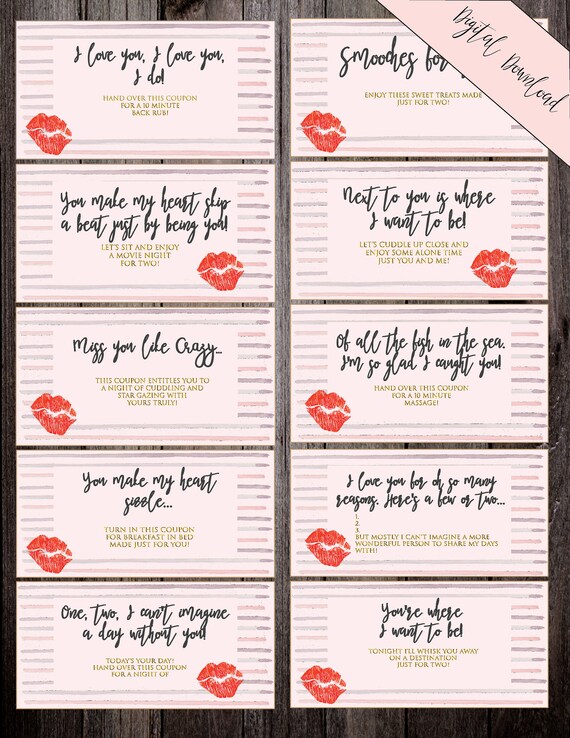 I love you, I love you,
I do!
HAND OVER THIS COUPON
FOR A 10 MINUTE
BACK RUB!
Smooches for
ENJOY THESE SWEET TREATS MADE
JUST FOR TWO!
Digital Download
You make my heart skip
a beat just by being you!
LET'S SIT AND ENJOY
A MOVIE NIGHT
FOR TWO!
Next to you is where
I want to be!
LET'S CUDDLE UP CLOSE AND
ENJOY SOME ALONE TIME
JUST YOU AND ME!
Miss you like Crazy...
THIS COUPON ENTITLES YOU TO
A NIGHT OF CUDDLING AND
STAR GAZING WITH
YOURS TRULY!
Of all the fish in the sea.
I'm so glad I caught you!
HAND OVER THIS COUPON
FOR A 10 MINUTE
MASSAGE!
You make my heart
sizzle...
TURN IN THIS COUPON
FOR BREAKFAST IN BED
MADE JUST FOR YOU!
I love you for oh so many
reasons. Here's a few or two...
1.
2.
3.
BUT MOSTLY I CAN'T IMAGINE A MORE
WONDERFUL PERSON TO SHARE MY DAYS
WITH!
One, two, I can't imagine
a day without you!
TODAY'S YOUR DAY!
HAND OVER THIS COUPON
FOR A NIGHT OF
You're where
I want to be!
TONIGHT I'LL WHISK YOU AWAY
ON A DESTINATION
JUST FOR TWO!